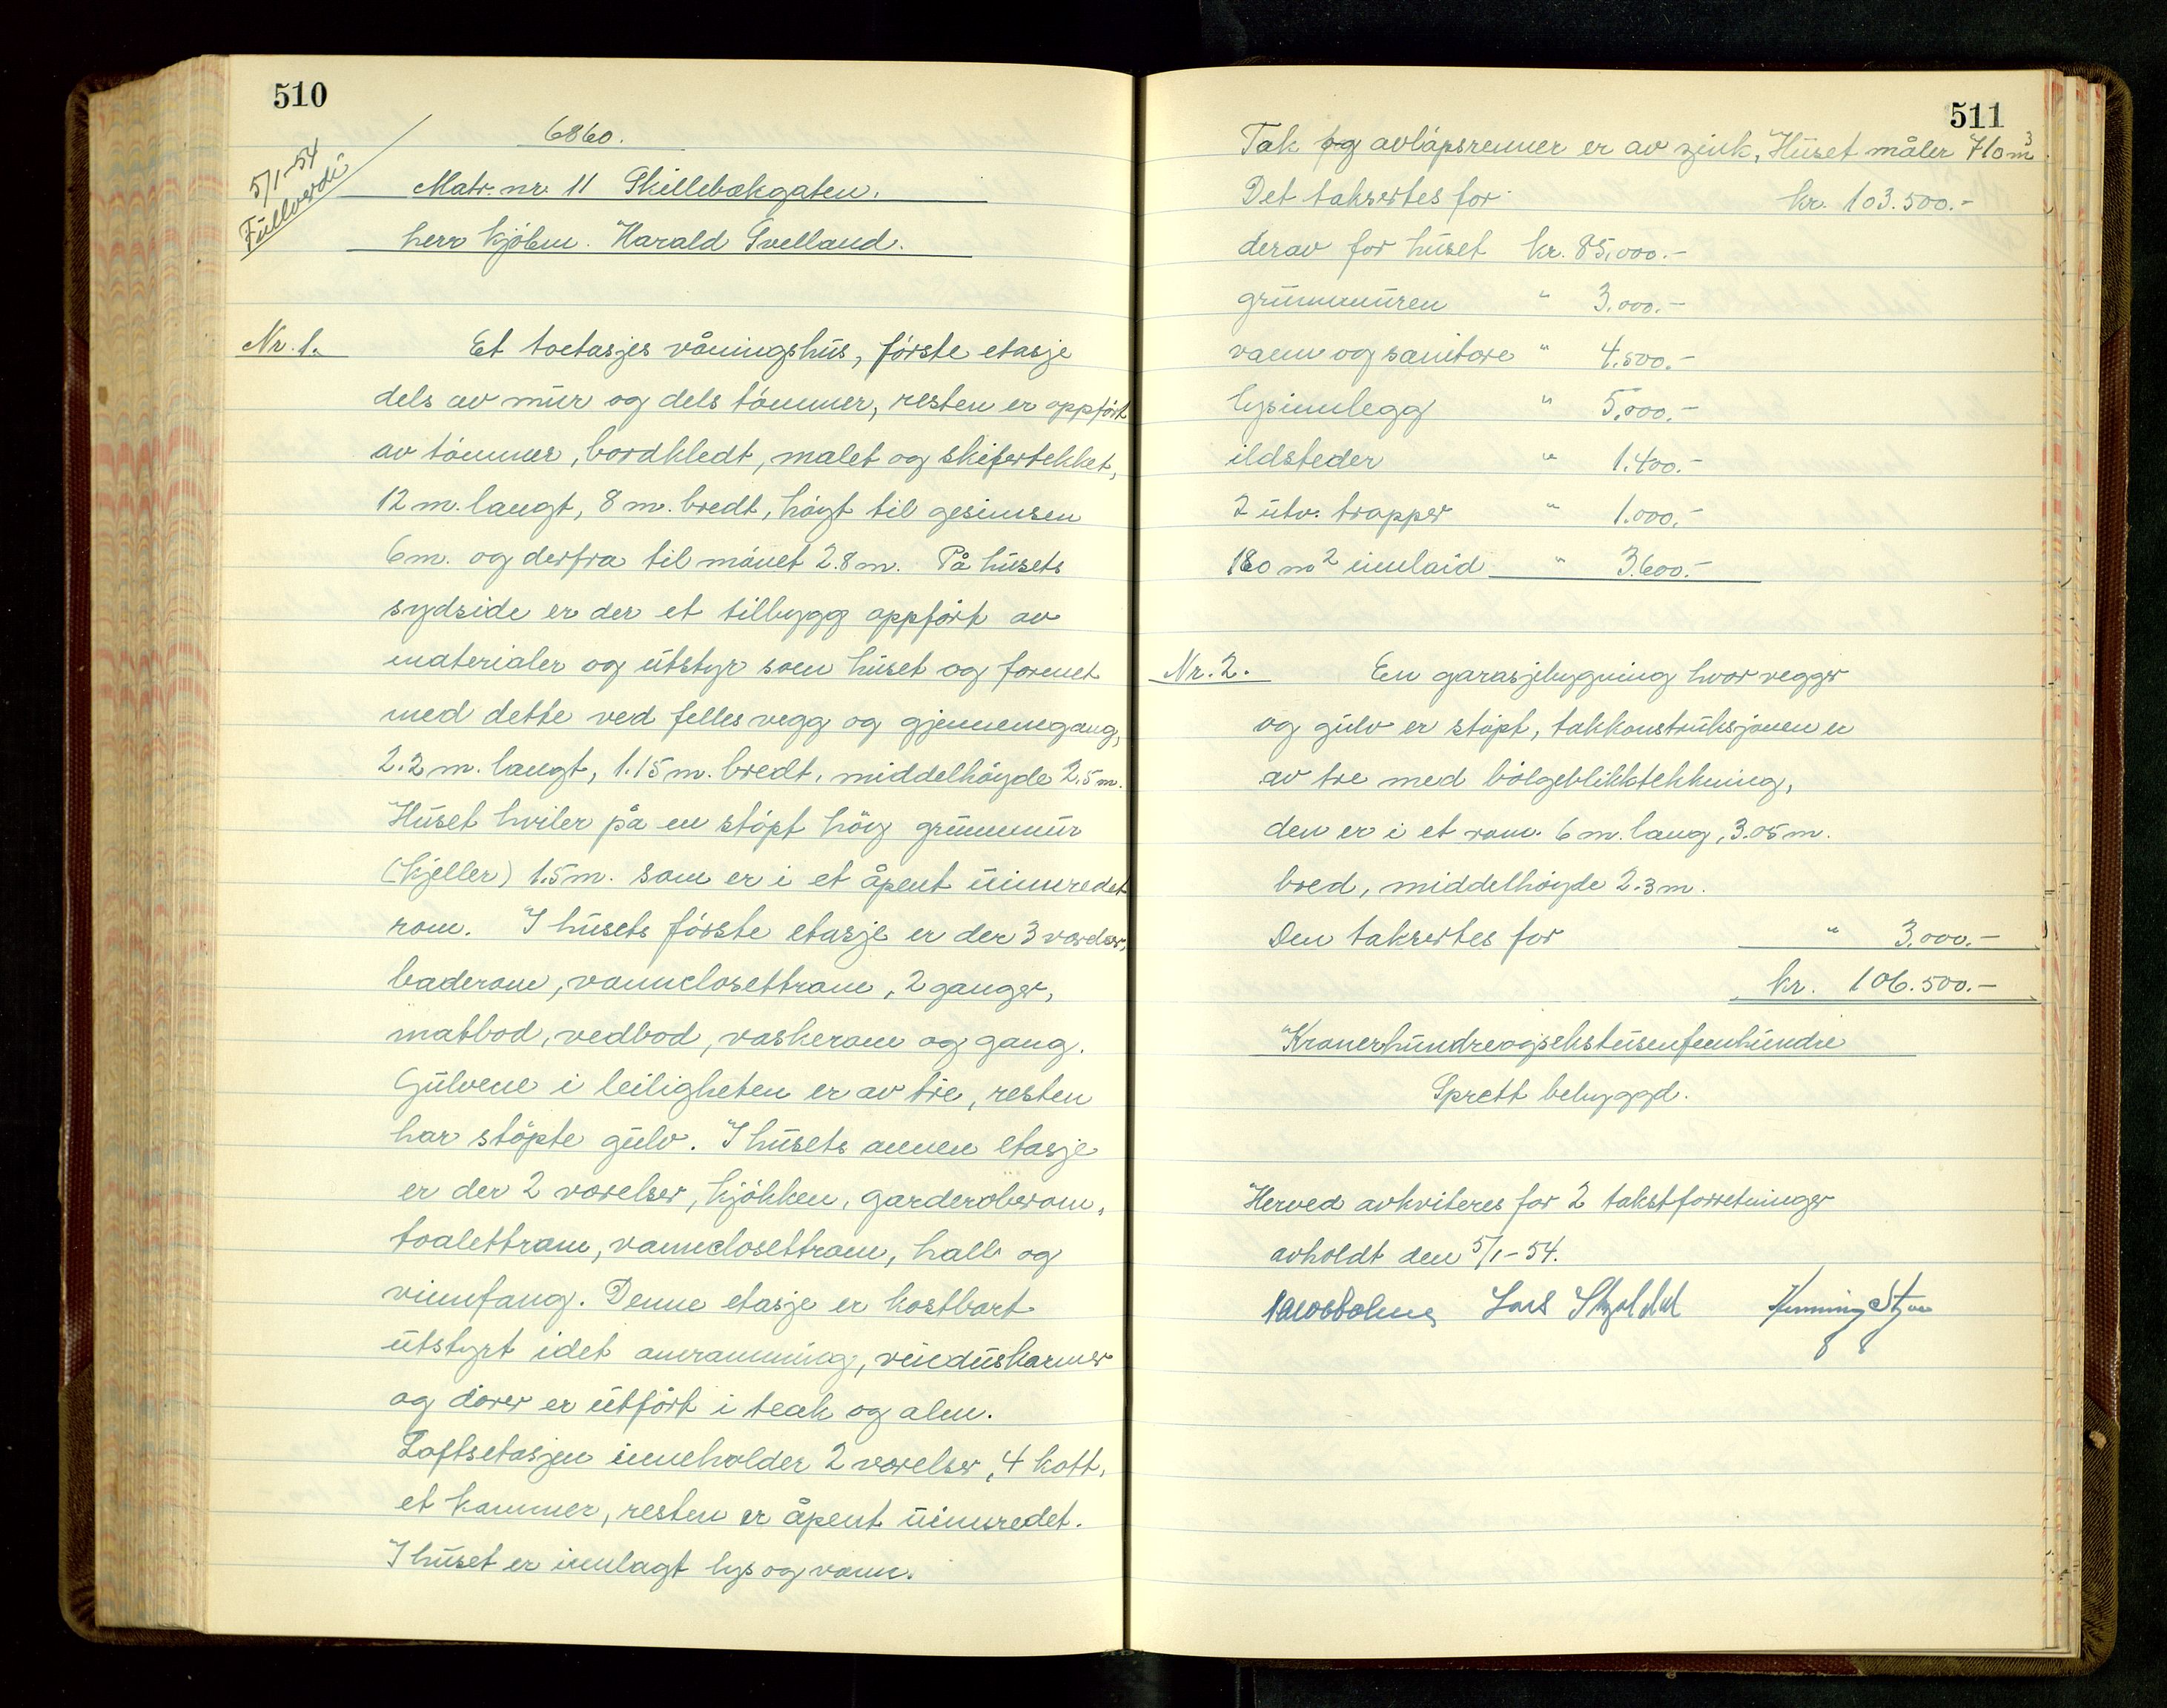 510
5/1-54
Fullverdi
6860.
Matr. nr. 11 Skillebækgaten.
herr kjøbm. Harald Tvelland.
Nr. 1. Et toetasjes våningshus, første etasje
dels av mur og dels tømmer, resten er oppført
av tømmer, bordkledt, malet og skifertekket,
12 m. langt, 8 m. bredt, høgt til gesimsen
6 m. og derfra til mønet 2.8 m. På husets
sydside er der et tilbygg oppført av
materialer og utstyr som huset og forenet
med dette ved felles vegg og gjennemgang,
2.2 m. langt, 1.15 m. bredt, middelhøyde 2.5 m.
Huset hviler på en støpt høg grunnmur
(kjeller) 1.5 m. som er i et åpent uinnredet
rom. I husets første etasje er der 3 værelser,
baderom, vannclosettrom, 2 ganger,
matbod, vedbod, vaskerom og gang.
Gulvene i leiligheten er av tre, resten
har støpte gulv. I husets annen etasje
er der 2 værelser, kjøkken, garderoberom,
toalettrom, vannclosettrom, hall og
vinnfang. Denne etasje er kostbart
utstyrt idet omramming, vinduskarmer
og dører er utført i teak og alm.
Loftsetasjen inneholder 2 værelser, 4 kott,
et kammer, resten er åpent uinnredet.
I huset er innlagt lys og vann.
511
Tak og avløpsrenner er av zink, Huset måler 710 m³
Det takseres for kr. 103.500.-
derav for huset kr. 85.000.-
grunnmuren " 3.000.-
vann og sanitære " 4.500.-
lysinnlegg " 5.000.-
ildsteder " 1.400.-
2 utv. trapper " 1.000.-
180 m² innlaid " 3.600.-
Nr. 2. En garasjebygning hvor vegger
og gulv er støpt, takkonstruksjonen er
av tre med bølgeblikktekkning,
den er i et rom 6 m. lang, 3.05 m.
bred, middelhøyde 2.3 m.
Den takseres for " 3.000.-
kr. 106.500.-
Kronerhundreogsekstusenfemhundre
Sprett bebyggd.
Herved avkviteres for 2 takstforretninger
avholdt den 5/1-54.
Lars
Henning